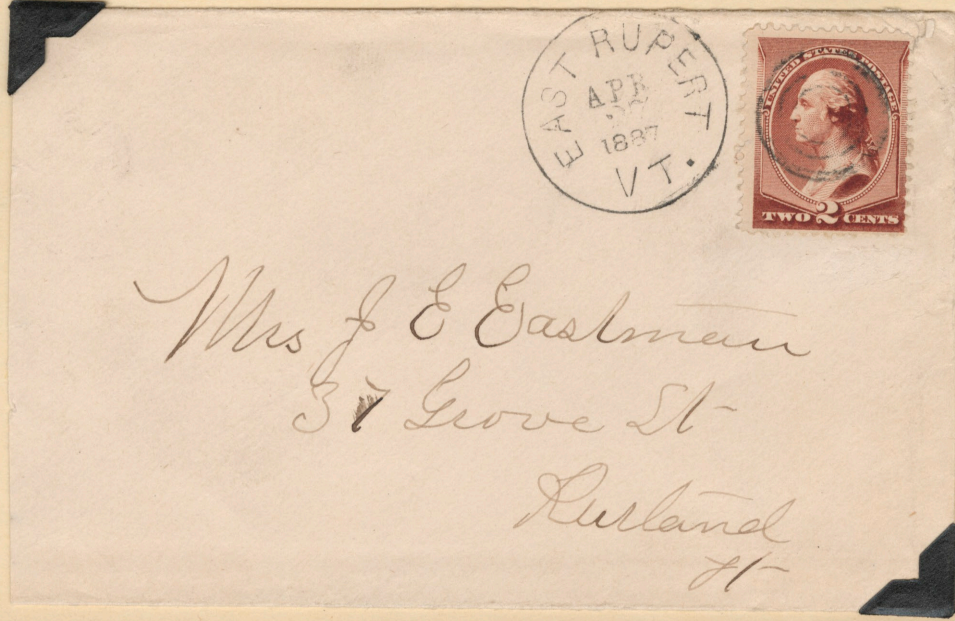 EAST RUPERT
APR
1887
VT.
UNITED STATES POSTAGE
TWO 2 CENTS
Mrs J E Eastman
37 Grove St
Rutland
Vt